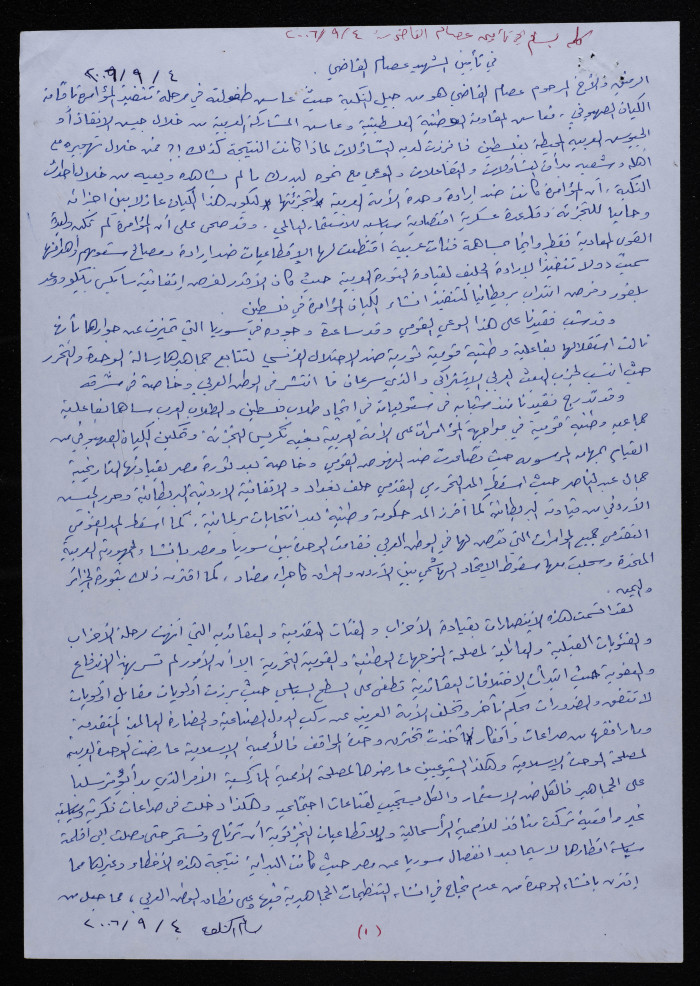 كلمة بسام في تأبين عصام القاضي ٤ / ٩ / ٢٠٠٦
في تأبين الشهيد عصام القاضي.
٤ / ٩ / ٢٠٠٦
الرفيق والأخ المرحوم عصام القاضي هو من جيل النكبة حيث عاش طفولته في مرحلة تنفيذ المؤامرة بإقامة
الكيان الصهيوني. فعايش المقاومة الوطنية الفلسطينية وعايش المشاركة العربية من خلال جيش الإنقاذ أو
الجيوش العربية المحيطة بفلسطين فأفرزت لديه التساؤلات لماذا كانت النتيجة كذلك؟! فمن خلال تهجيره مع
أهله وشعبه بدأت التساؤلات والتفاعلات والوعي مع نموه ليدرك ما لم يشاهده ويعيه من خلال أحداث
النكبة، أن المؤامرة كانت ضد إرادة وحدة الأمة العربية لتجزئتها ليكون هذا الكيان عازلا بين أجزائه
وحاميا للتجزئة وقاعدة عسكرية اقتصادية سياسية للاستعمار العالمي. وقد صحى على أن المؤامرة لم تكن وليدة
القوى المعادية فقط وإنما مساهمة فئات عربية اقتطعت لها الإقطاعيات ضد إرادة ومصالح شعوبهم
سميت دولا تنفيذا لإرادة الحليف لقيادة الثورة العربية حيث كان الأقدر لفرض اتفاقية سايكس بيكو ووعد
بلفور وفرض انتداب بريطانيا لتنفيذ انشاء الكيان المؤامرة في فلسطين
وقد شب فقيدنا على هذا الوعي القومي وقد ساعده وجوده في سوريا التي تميزت عن جوارها بأنها
نالت استقلالها بفاعلية وطنية قومية ثورية ضد الاحتلال الفرنسي لتتابع جماهيرها رسالة الوحدة والتحرر
حيث انتسب لحزب البعث العربي الاشتراكي والذي سرعان ما انتشر في الوطن العربي وخاصة في مشرقه
وقد تدرج فقيدنا منذ شبابه في مسئولياته في اتحاد طلاب فلسطين والطلاب العرب مساهما بفاعلية
جماعية وطنية قومية في مواجهة المؤامرات على الأمة العربية بغية تكريس التجزئة وتمكين الكيان الصهيوني من
القيام بمهامه المرسومة حيث تضافرت ضد النهوض القومي وخاصة بعد ثورة مصر لقيادتها التاريخية
جمال عبد الناصر حيث اسقط المد التحرري التقدمي حلف بغداد والاتفاقية الأردنية البريطانية وحرر الجيش
الأردني من قيادته البريطانية كما أفرز المد حكومة وطنية بعد انتخابات برلمانية. كما اسقط المد القومي
التقدمي جميع المؤامرات التي تعرض لها في الوطن العربي فقامت الوحدة بين سوريا ومصر بإنشاء الجمهورية العربية
المتحدة وسجلت معها سقوط الاتحاد الهاشمي بين الأردن والعراق كإجراء مضاد، كما اقترن ذلك بثورة الجزائر
واليمن.
لقد اتسمت هذه الانتصارات بقيادة الأحزاب والفئات التقدمية والعقائدية التي أنهت مرحلة الأحزاب
والفئويات القبلية والعائلية لمصلحة التوجهات الوطنية والقومية التحررية إلا أن الأمور لم تسر بهذا الاندفاع
والعفوية حيث ابتدأت الاختلافات العقائدية تطفى على السطح السياسي حيث برزت أولويات مقابل أولويات
لا تتفق والضرورات بحكم تأخر وتخلف الأمة العربية عن ركب الدول الصناعية والحضارة العالمية المتقدمة
وما رافقها من صراعات وأفكار أخذت تخترق وحدة المواقف فالأممية الإسلامية عارضت الوحدة العربية
لمصلحة الوحدة الإسلامية وهكذا الشيوعيين عارضوها لمصلحة الأممية الماركسية الأمر الذي بدأ يؤثر سلبا
على الجماهير فالكل ضد الاستعمار والكل يستجيب لقناعات اجتماعية وهكذا دخلت في صراعات فكرية وسياسية
غير واقعية تركت منافذ للأممية الرأسمالية والإقطاعيات التجزيئية أن ترتاح وتستمر حتى وصلت إلى اقلمة
سياسة اقطارها لا سيما بعد انفصال سوريا عن مصر حيث كانت البداية نتيجة هذه الأخطاء وغيرها مما
اقترن بإنشاء الوحدة من عدم نجاح في انشاء التنظيمات الجماهيرية فيها وعلى نطاق الوطن العربي، مما جعل من
٤ / ٩ / ٢٠٠٦
(١)